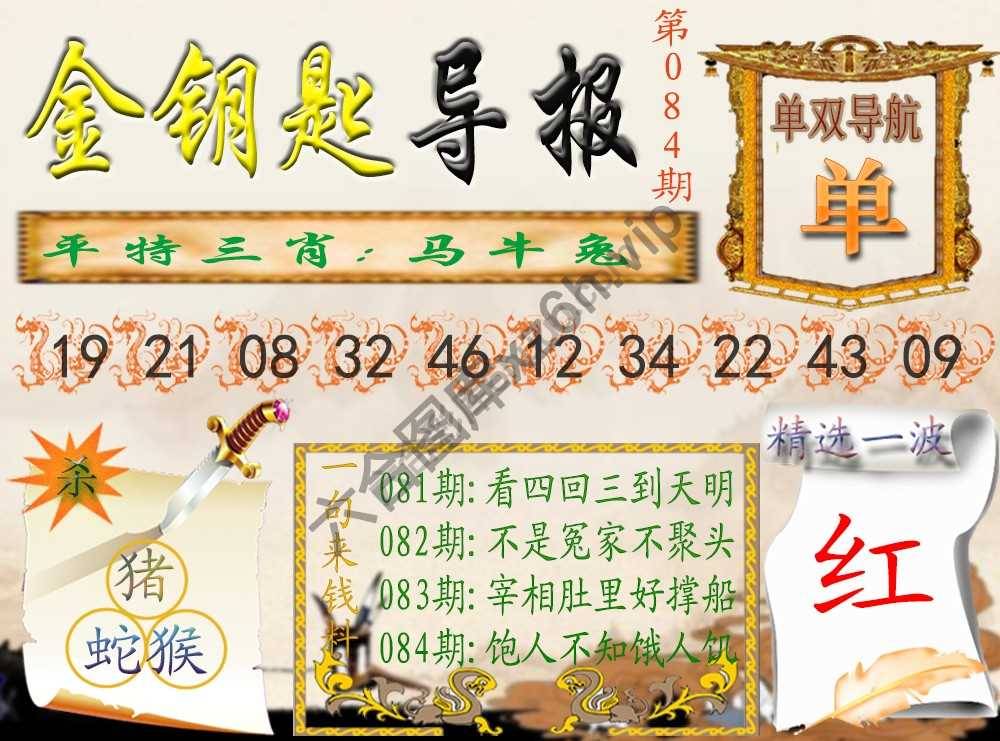 金钥匙导报
第084期
单双导航
单
平特三肖:马牛兔
19 21 08 32 46 12 34 22 43 09
杀
猪
蛇猴
一句来钱料
081期:看四回三到天明
082期:不是冤家不聚头
083期:宰相肚里好撑船
084期:饱人不知饿人饥
精选一波
红